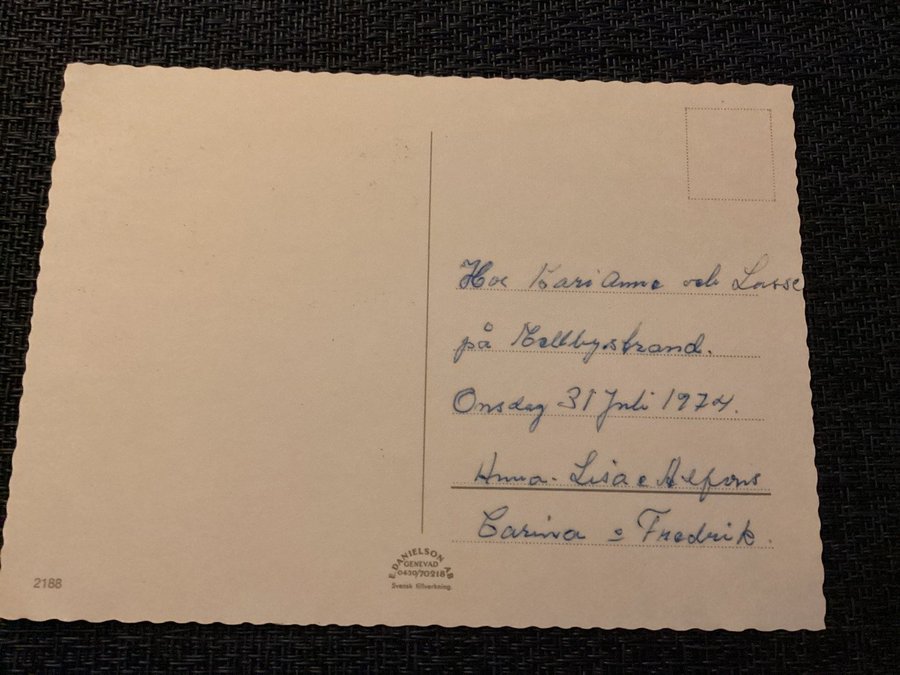 Hos Kari Anne och Lasse
på Mellbystrand.
Onsdag 31 Juli 1974.
Anna-Lisa o Alfons
Carina o Fredrik.
E. DANIELSON AB
GENEVAD
0430/70218
Svensk tillverkning.
2188